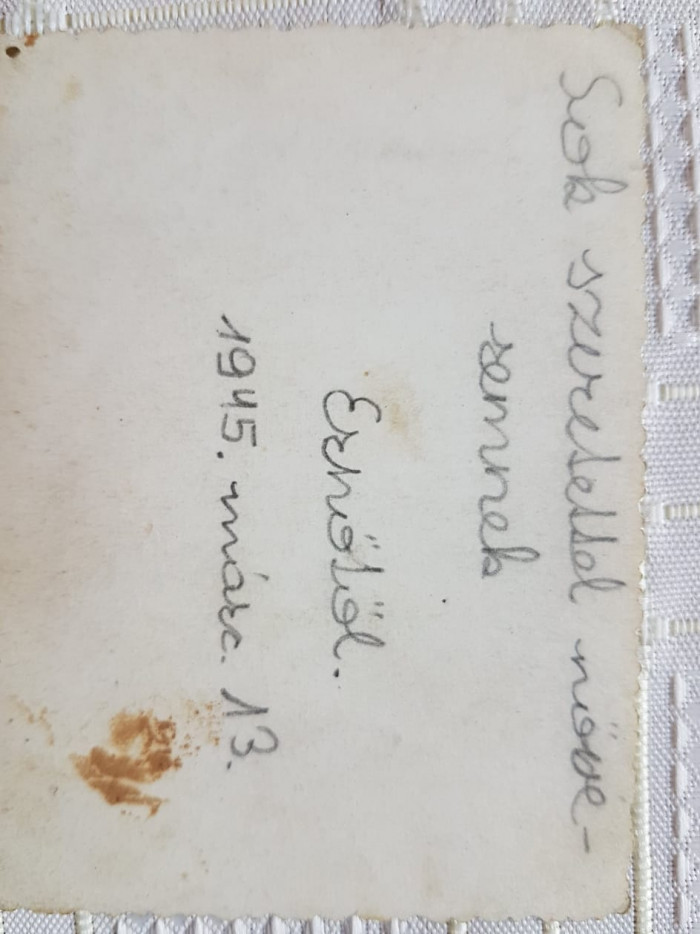 Sok szeretettel nővé-
remnek
Ernőtől.
1945. márc. 13.